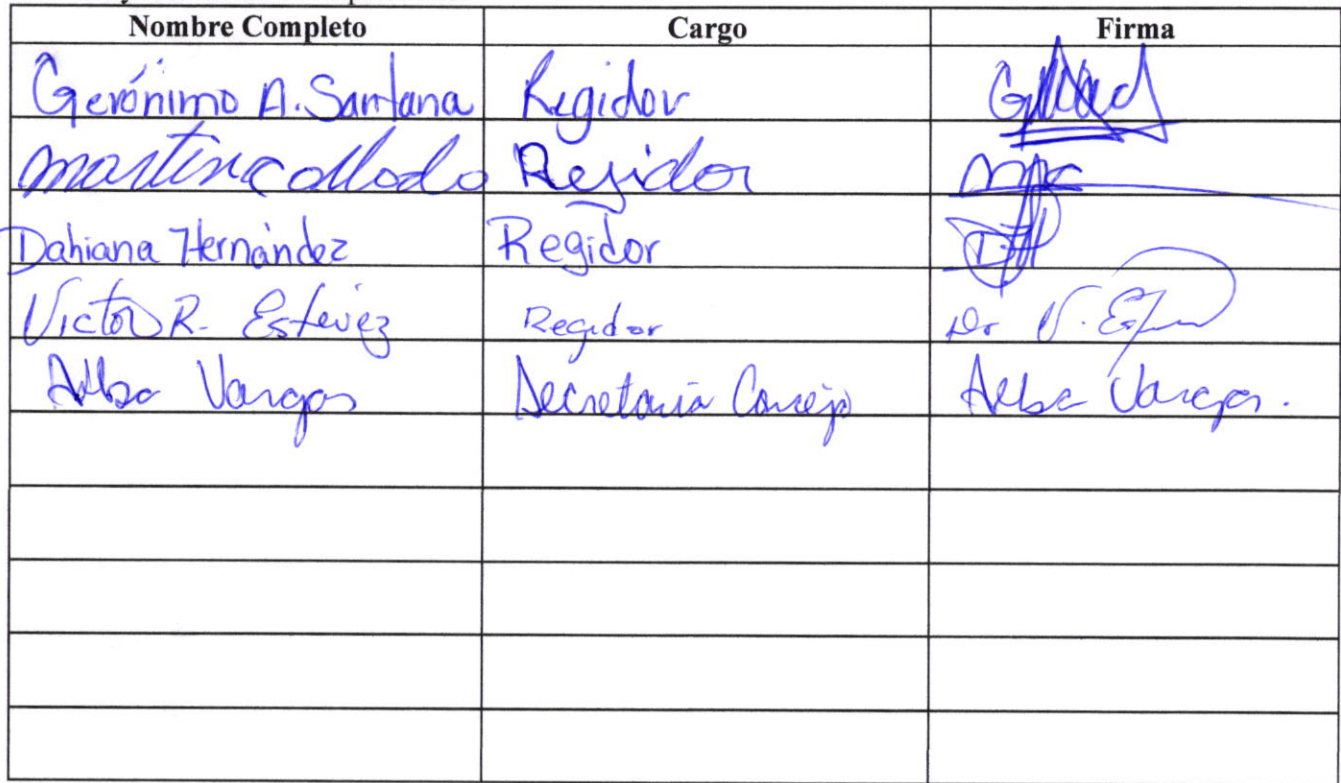 Nombre Completo Cargo Firma
Gerónimo A. Santana Regidor
Martina Collado Regidor
Dahiana Hernández Regidor
Victor R. Estevez Regidor Dr V.
Alba Vargas Secretaria Concejo Alba Vargas.